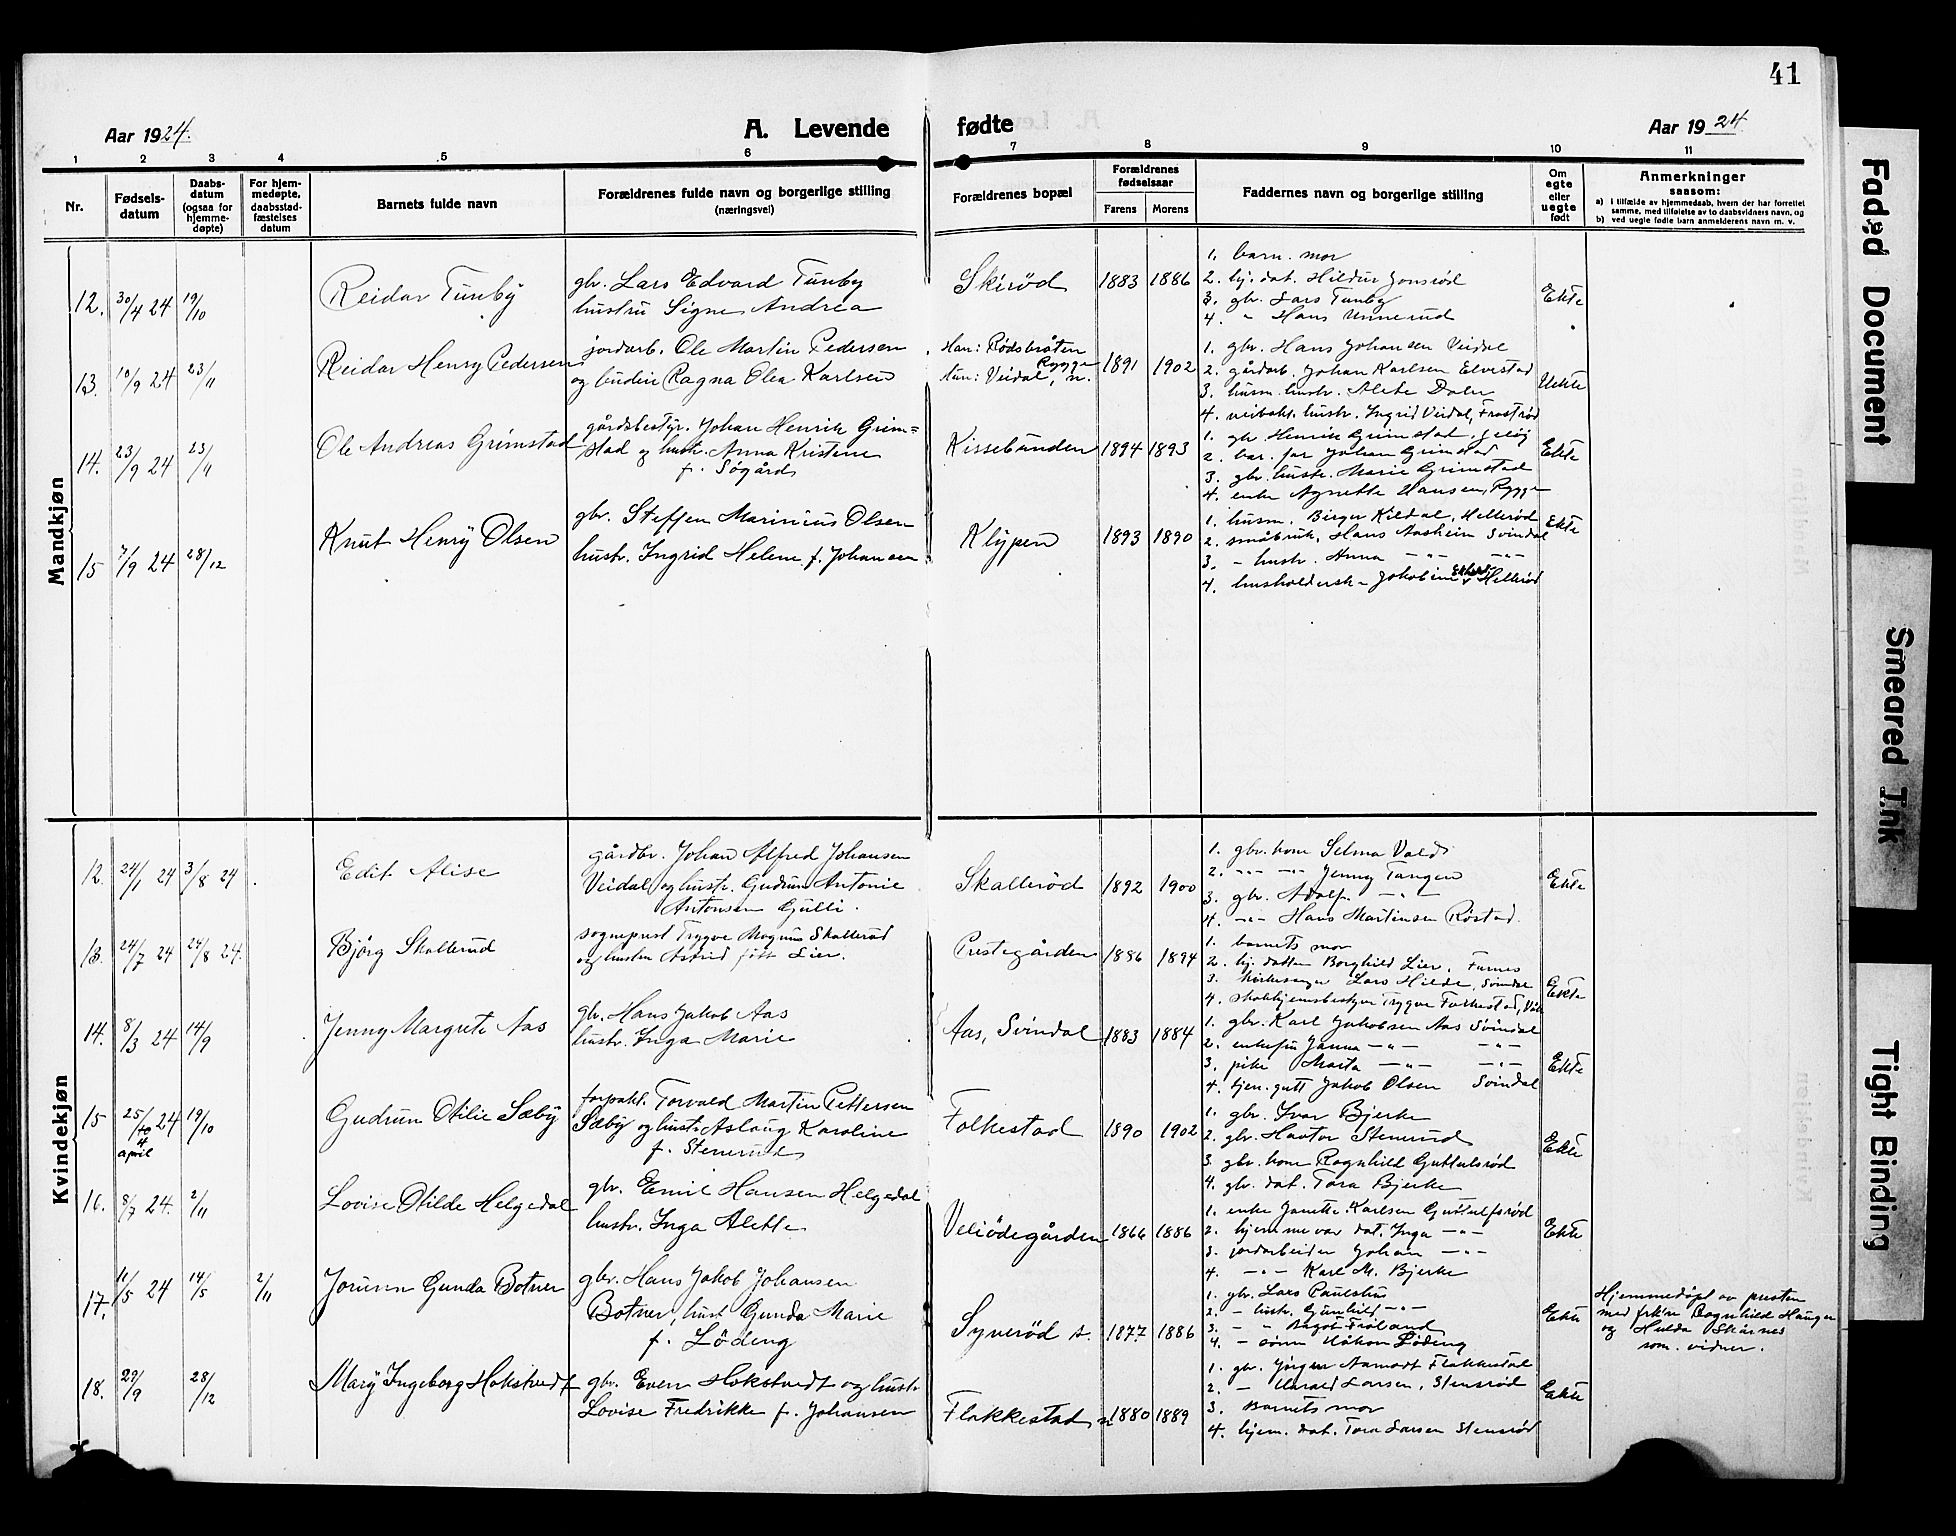 41
Aar 1924.
A. Levende fødte
Aar 1924
1 2 3 4 5 6 7 8 9 10 11
Nr.
Fødsels-
datum
Daabs-
datum
(ogsaa for
hjemme-
døpte)
For hjem-
medøpte,
daabsstad-
fæstelses
datum
Barnets fulde navn
Forældrenes fulde navn og borgerlige stilling
(næringsvei)
Forældrenes bopæl
Forældrenes
fødselsaar
Farens Morens
Faddernes navn og borgerlige stilling
Om
egte
eller
uegte
født
Anmerkninger
saasom:
a) i tilfælde av hjemmedaab, hvem der har forrettet
samme, med tilføielse av to daabsvidners navn, og
b) ved uegte fødte barn anmelderens navn m. v.
Mandkjøn
12. 30/4 24 19/10
Reidar Tunby
gbr. Lars Edvard Tunby
hustru Signe Andrea
Skirød 1883 1886
1. barn. mor
2. hj. dat. Hildur Jonsrød
3. gbr. Lars Tunby
4. " Hans Unnerud
Ekte
13. 10/9 24 23/11
Reidar Henry Pedersen
jordarb. Ole Martin Pedersen
og budeie Ragna Olea Karlsen
Han: Rødsbråten
Rygge
Hun: Veidal, n.
1891 1902
1. gbr. Hans Johansen Veidal
2. gårdarb. Johan Karlsen Elvestad
3. husm. hustr. Alete Dalen
4. hustr. Ingrid Veidal, Frostrød
Uekte
14. 23/9 24 23/11
Ole Andreas Grimstad
gårdsbestyr. Johan Henrik Grim=
stad og hustr. Anna Kristine
f. Søgård
Kissebunden 1894 1893
1. gbr. Henrik Grimstad, Jeløy
2. bar. far Johan Grimstad
3. gbr. hustr. Marie Grimstad
4. enke Agnette Hansen, Rygge
Ekte
15 7/9 24 28/12
Knut Henry Olsen
gbr. Steffen Marinius Olsen
hustr. Ingrid Helene f. Johansen
Klypen 1893 1890
1. husm. Birger Kildal, Hellerød
2. småbruk. Hans Aasheim Svindal
3. - hustr. Anna -"- -"-
4. husholdersk - Jakobine Hellerød
Ekte
Kvindekjøn
12. 24/1 24 3/8 24
Edit Alise
gårdbr. Johan Alfred Johansen
Veidal og hustr. Gudrun Antonie
Antonsen Gulli.
Skallerød 1892 1900
1. gbr. kone Selma Vald
2. -"- -"- Jenny Tangen
3. gbr. Adolf -"-
4. -"- Hans Martinsen Røstad.
Ekte
13. 24/7 24 24/8 24.
Bjørg Skallerud
sogneprest Trygve Magnus Skallerud
og hustru Astrid født Lier.
Prestegården 1886 1894
1. barnets mor
2. hj. datter Borghild Lier, Furnes
3. kirkesanger Lars Hilde, Svindal
4. skolehjemsbestyrer Trygve Folkestad,
Ekte
14. 8/3 24 14/9
Jenny Margrete Aas
gbr. Hans Jakob Aas
hustr. Inga Marie
Aas, Svindal 1883 1884
1. gbr. Karl Jakobsen Aas Svindal
2. enkefru Janna -"- -"-
3. pike Marta -"- -"-
4. tjen. gutt Jakob Olsen Svindal
Ekte
15 25/10 24 19/10
4
april
Gudrun Otilie Sæby
forpakt. Torvald Martin Pettersen
Sæby og hust. Aslaug Karoline
f. Stenerud
Folkestad 1890 1902
1. gbr. Ivar Bjerke
2. gbr. Havtor Stenerud
3. gbr. kone Ragnhild Guttulsrød
4. gbr. dat. Tora Bjerke
Ekte
16. 8/7 24. 2/11
Lovise Otilde Helgedal
gbr. Emil Hansen Helgedal
hustr. Inga Alette
Veliødegården 1866 1886
1. enke Janette Karlsen Guttulfsrød
2. hjemmevær. dat. Inga -"-
3. jordarbeider Johan -"-
4. -"- Karl M. Bjerke
Ekte
17. 11/5 24 14/5 2/11
Jorunn Gunda Botner
gbr. Hans Jakob Johansen
Botner, hust Gunda Marie
f. Lødeng
Syverød s. 1877 1886
1. gbr. Lars Paulshus
2. - hustr. Gunhild -"-
3. - " Dagot Frøland
4. - sønn Håkon Lødeng
Ekte
Hjemmedøpt av presten
med frk'ne Ragnhild Hauger
og Hulda Skårnes
som vidner.
18. 29/9 28/12
Mary Ingeborg Hokstvedt
gbr. Even Hokstvedt og hustr
Lovise Fredrikke f. Johansen
Flakkestad n 1880 1889
1. gbr. Jørgen Aamodt Flakkestad
2. - Harald Larsen, Stensrød
3. Barnets mor
4. hjem. dat. Tora Larsen Stensrød
Ekte
Faded Document
Smeared Ink
Tight Binding